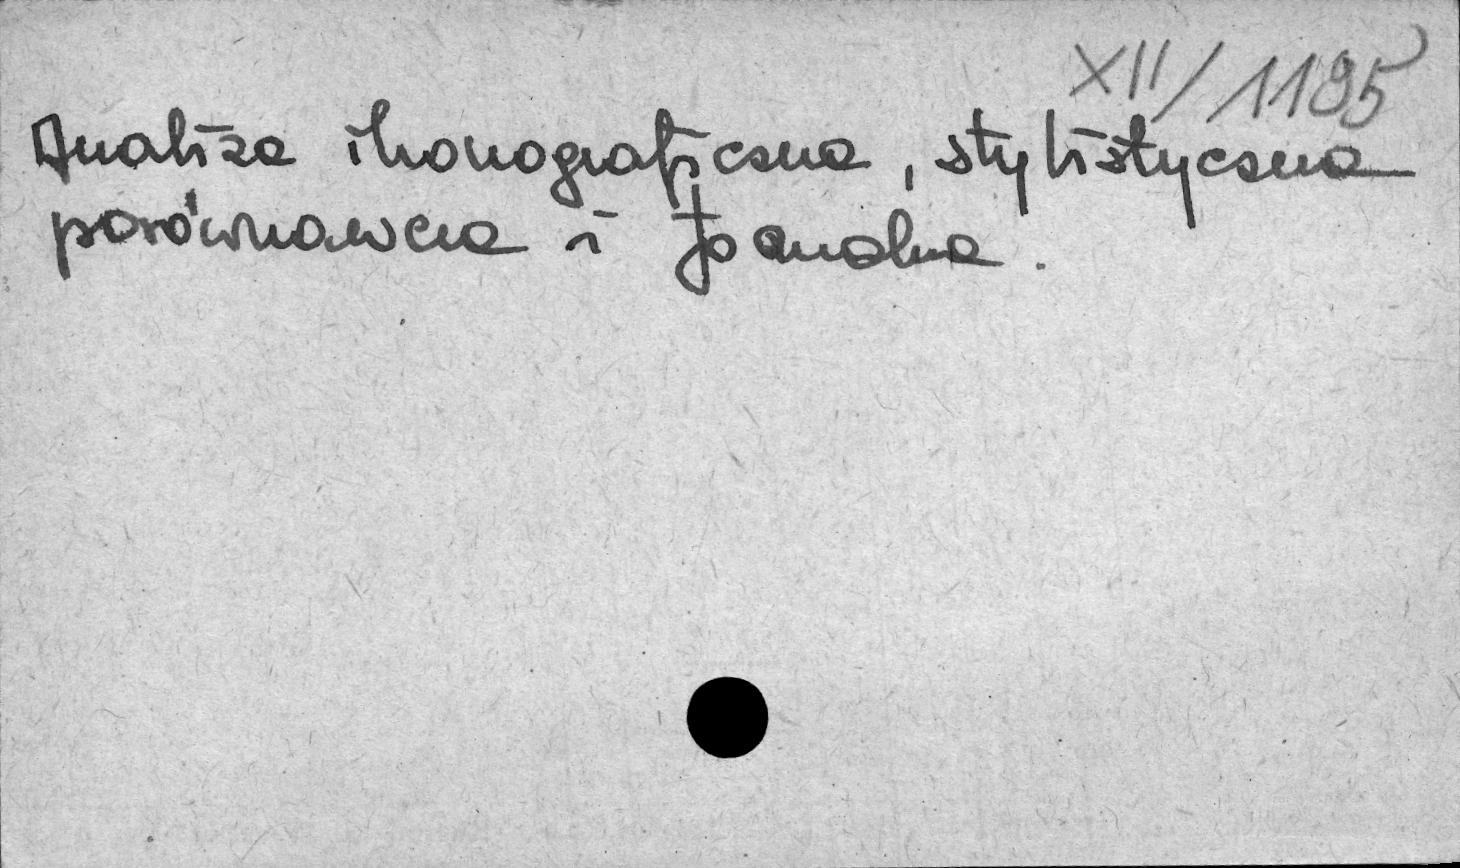 XII/1195
Analiza ikonograficzna, stylistyczna
porównawcza i formalna.